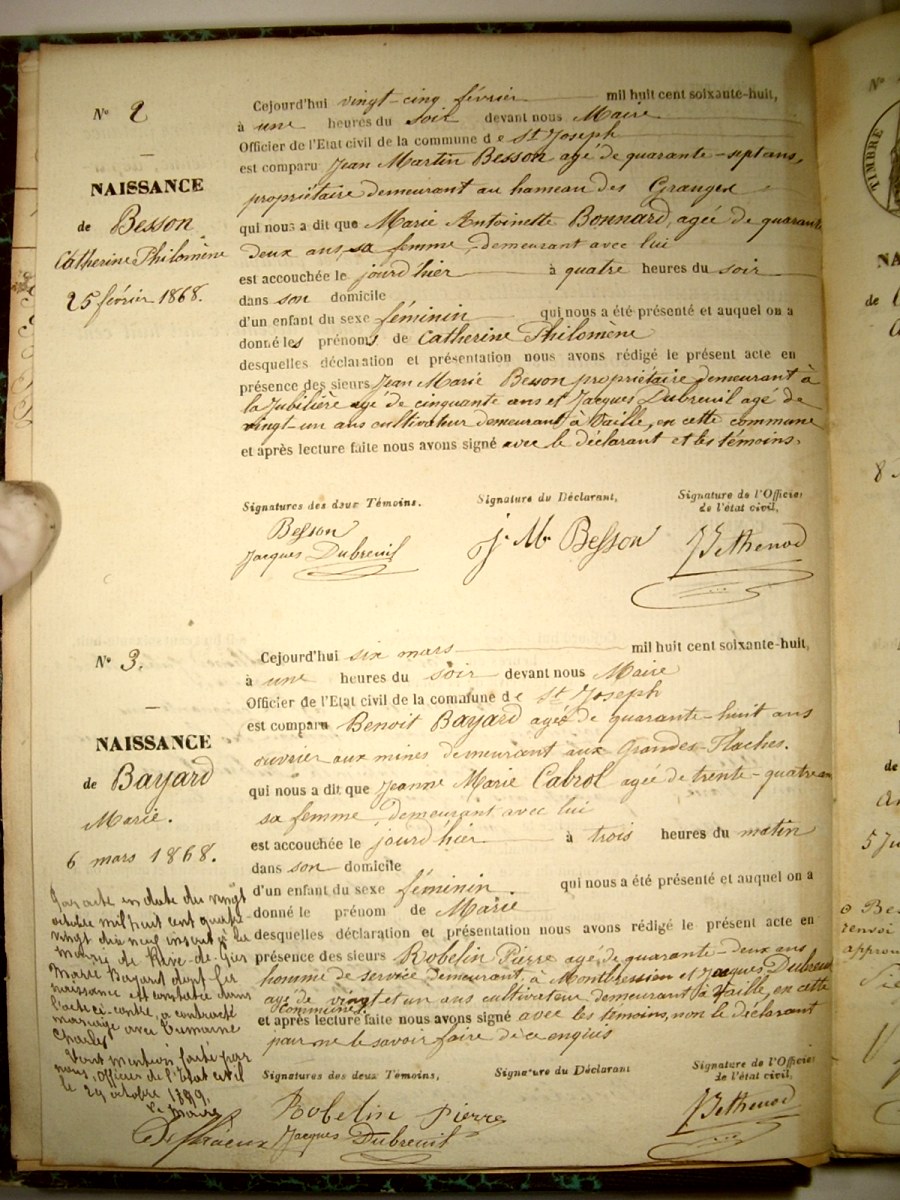 N° 2
NAISSANCE
de Besson
Catherine Philomène
25 février 1868.
Cejourd'hui vingt-cinq février mil huit cent soixante-huit,
à une heures du soir devant nous Maire
Officier de l'Etat civil de la commune de St Joseph
est comparu Jean Martin Besson agé de quarante-sept ans,
propriétaire demeurant au hameau des Granges
qui nous a dit que Marie Antoinette Bonnard, agée de quarante
deux ans, sa femme, demeurant avec lui
est accouchée le jourd'hier à quatre heures du soir
dans son domicile
d'un enfant du sexe féminin qui nous a été présenté et auquel on a
donné les prénoms de Catherine Philomène
desquelles déclaration et présentation nous avons rédigé le présent acte en
présence des sieurs Jean Marie Besson propriétaire demeurant à
la Jubilière agé de cinquante ans et Jacques Dubreuil agé de
vingt-un ans cultivateur demeurant à Vaille, en cette commune
et après lecture faite nous avons signé avec le déclarant et les témoins.
Signatures des deux Témoins.
Signature du Déclarant,
Signature de l'Officier
de l'état civil,
Besson
Jacques Dubreuil
J. M. Besson
N° 3.
NAISSANCE
de Bayard
Marie.
6 mars 1868.
Cejourd'hui six mars mil huit cent soixante-huit,
à une heures du soir devant nous Maire
Officier de l'Etat civil de la commune de St Joseph
est comparu Benoit Bayard agé de quarante-huit ans
ouvrier aux mines demeurant aux Grandes-Flaches.
qui nous a dit que Jeanne Marie Cabrol agée de trente-quatre ans
sa femme, demeurant avec lui
est accouchée le jourd'hier à trois heures du matin
dans son domicile
d'un enfant du sexe féminin. qui nous a été présenté et auquel on a
donné le prénom de Marie
desquelles déclaration et présentation nous avons rédigé le présent acte en
présence des sieurs Robelin Pierre agé de quarante-deux ans
homme de service demeurant à Montbressieu et Jacques Dubreuil
agé de vingt et un ans cultivateur demeurant à Vaille, en cette
commune,
et après lecture faite nous avons signé avec les témoins, non le déclarant
pour ne le savoir faire de ce enquis
Par acte en date du vingt
octobre mil huit cent quatre
vingt dix neuf inscrit à la
mairie de Rive-de-Gier
Marie Bayard dont la
naissance est constatée dans
l'acte ci-contre, a contracté
mariage avec
Charles
Dont mention faite par
nous, Officier de l'Etat civil
le 29 octobre 1899.
Le Maire
Signatures des deux Témoins,
Signature du Déclarant
Signature de l'Officier
de l'état civil,
Robelin Pierre
Jacques Dubreuil
TIMBRE